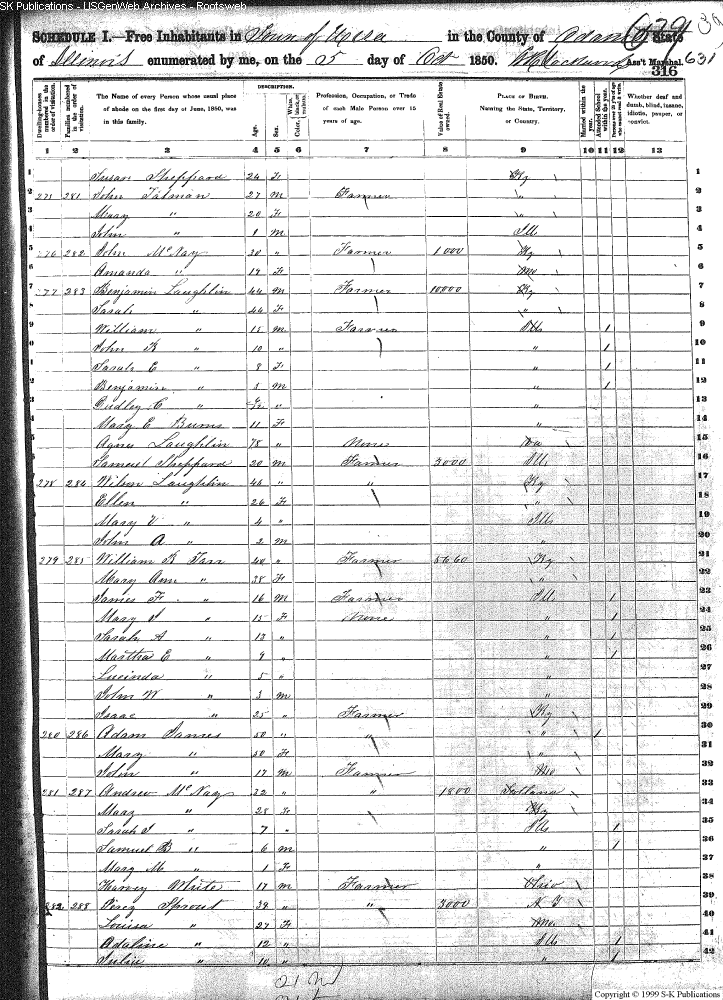 SK Publications - USGenWeb Archives - Rootsweb
639
SCHEDULE I.—Free Inhabitants in Town of Ursa in the County of Adams State
of Illinois enumerated by me, on the 5 day of Oct 1850. Ass't Marshal. 631
316
Dwelling-houses numbered in the order of visitation.
Families numbered in the order of visitation.
The Name of every Person whose usual place of abode on the first day of June, 1850, was in this family.
DESCRIPTION.
Age.
Sex.
Color, White, black, or mulatto.
Profession, Occupation, or Trade of each Male Person over 15 years of age.
Value of Real Estate owned.
PLACE OF BIRTH. Naming the State, Territory, or Country.
Married within the year.
Attended School within the year.
Persons over 20 y'rs of age who cannot read & write.
Whether deaf and dumb, blind, insane, idiotic, pauper, or convict.
1 2 3 4 5 6 7 8 9 10 11 12 13
1 Susan Sheppard 24 F Ky 1
2 281 John Talman 27 M Farmer " 2
3 Mary " 20 F " 3
4 John " 1 M Ills 4
5 276 282 John McNay 30 " Farmer 1000 Ky 5
6 Amanda " 19 F Mo 6
7 277 283 Benjamin Laughlin 44 M Farmer 10000 Ky 7
8 Sarah " 44 F " 8
9 William " 18 M Farmer Ills 1 9
10 John K " 10 " " 1 10
11 Sarah E " 8 F " 1 11
12 Benjamin " 5 M " 1 12
13 Dudley C " " " 13
14 Mary E Burns 11 F " 14
15 Agnes Laughlin 78 " None Va 15
16 Samuel Sheppard 20 M Farmer 3000 Ills 16
17 278 284 Wilson Laughlin 46 " " Ky 17
18 Ellen " 26 F " 18
19 Mary V " 4 " Ills 19
20 John A " 2 M " 20
21 279 285 William K Tarr 40 " Farmer 5660 Ky 21
22 Mary Ann " 38 F " 22
23 James F. " 16 M Farmer Ills 1 23
24 Mary J " 15 F None " 1 24
25 Sarah A " 13 " " 1 25
26 Martha E " 9 " " 1 26
27 Lucinda " 5 " " 27
28 John W " 3 M " 28
29 Isaac " 25 " Farmer Ky 29
30 280 286 Adam James 50 " " " 1 30
31 Mary " 50 F " 31
32 John " 17 M Farmer Mo 32
33 281 287 Andrew McNay 32 " " 1800 33
34 Mary " 28 F Ky 34
35 Sarah J " 7 " Ills 1 35
36 Samuel B " 6 M " 1 36
37 Mary M " 1 F " 37
38 Harvey White 17 M Farmer Ohio 38
39 282 288 Perez Sprout 39 " " 3000 N. Y 39
40 Louisa " 27 F Mo. 40
41 Adaline " 12 " Ills 1 41
42 Julia " 10 " " 1 42
21 M
Copyright © 1999 S-K Publications